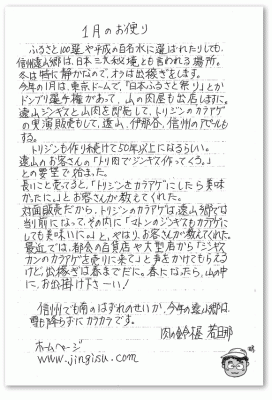 1月のお便り
ふるさと100選や平成の百名水に選ばれたりしても、
信州遠山郷は、日本三大秘境とも言われる場所。
冬は特に静かなので、オラは出稼ぎをします。
今年の1月は、東京ドームで、「日本ふるさと祭り」とか
ドンブリ選手権があって、山の肉屋も出店します。
遠山ジンギスと山肉を即売して、トリジンのカラアゲ
の実演販売もして、遠山、伊那谷、信州のアピールも
する。
トリジンも作り続けて50年以上になるらしい。
遠山のお客さんの「トリ肉でジンギス作ってくり」
との要望で始まった。
長いこと売ってると、「トリジンをカラアゲにしたら美味
かったに。」とお客さんが教えてくれた。
対面販売だから、トリジンのカラアゲは、遠山郷では
当り前になって、その内に「マトンのジンギスもカラアゲに
しても美味いに。」と、やはり、お客さんが教えてくれた。
最近では、都会の百貨店や大型店から「ジンギス
カンのカラアゲを売りに来て」と声をかけてもらえる
けど、出稼ぎは春までだに。春になったら、山の中
に、お出掛け下さーい!
信州でも南のはずれのせいか、今年の遠山郷は
雪も降らずにカラカラです。
肉の鈴禧 若旦那
ホームページ
www.jingisu.com